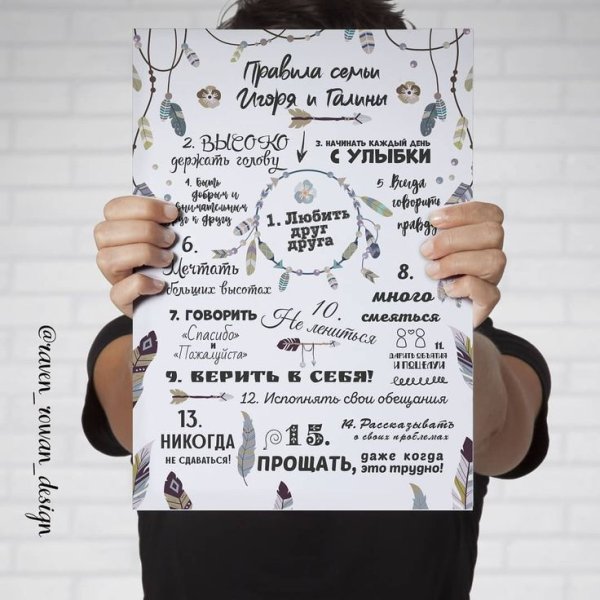 Правила семьи
Игоря и Галины
2. ВЫСОКО
держать голову
3. НАЧИНАТЬ КАЖДЫЙ ДЕНЬ
С УЛЫБКИ
1. Любить
друг
друга
4. Быть
добрым и
к другу
5. Всегда
говорить
правду
6.
Мечтать
больших высотах
7. ГОВОРИТЬ
«Спасибо»
и
«Пожалуйста»
8.
много
смеяться
10.
Не лениться
11.
ДАРИТЬ ОБЪЯТИЯ
И ПОЦЕЛУИ
9. ВЕРИТЬ В СЕБЯ!
12. Исполнять свои обещания
13.
НИКОГДА
НЕ СДАВАТЬСЯ!
14. Рассказывать
о своих проблемах
15.
ПРОЩАТЬ, даже когда
это трудно!
@raven_rowan_design